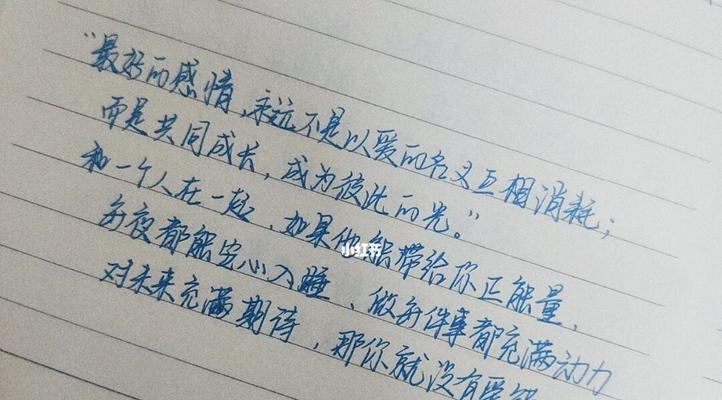 “最好的感情，永远不是以爱的名义互相消耗；
而是共同成长，成为彼此的光。”
和一个人在一起，如果他能带给你正能量，
每夜都能安心入睡、做每件事都充满动力
对未来充满期待，那你就没有爱错
小红书